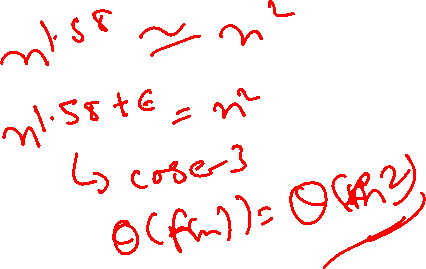 n^1.58 ≃ n^2
n^1.58+ϵ = n^2
↳ case-3
θ(f(n)) = θ(n^2)